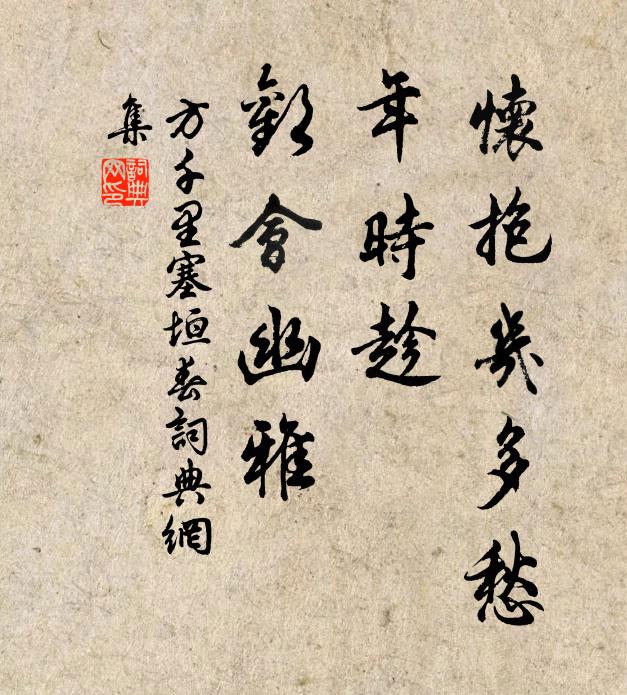 懷抱幾多愁
年時趁
歡會幽雅
方千里塞垣春詞典網
集
詞典網印